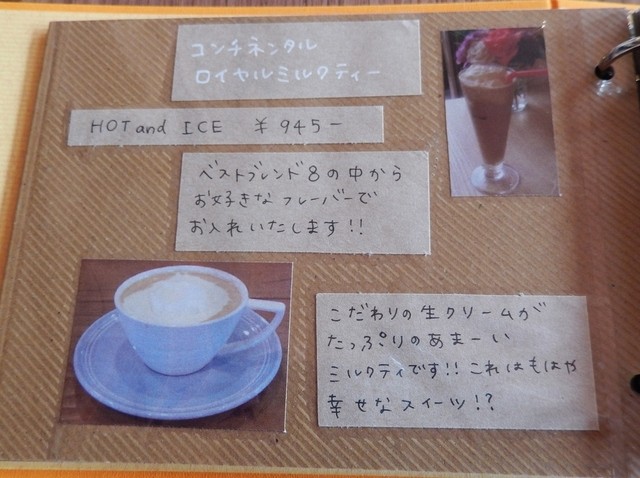 コンチネンタル
ロイヤルミルクティー
HOT and ICE ¥945-
ベストブレンド8の中から
お好きなフレーバーで
お入れいたします!!
こだわりの生クリームが
たっぷりのあまーい
ミルクティです!! これはもはや
幸せなスイーツ!?